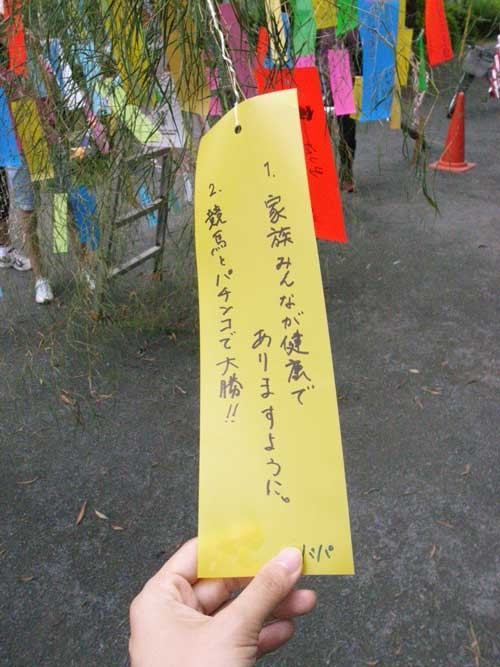 1. 家族みんなが健康で
ありますように。
2. 競馬とパチンコで大勝!!
パパ